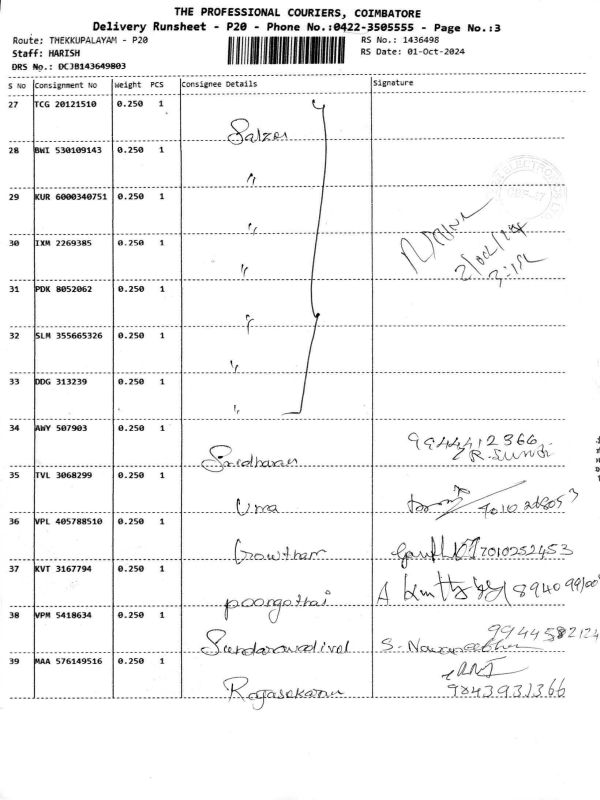 THE PROFESSIONAL COURIERS, COIMBATORE
Delivery Runsheet - P20 - Phone No.:0422-3505555 - Page No.:3
Route: THEKKUPALAYAM - P20
RS No.: 1436498
Staff: HARISH
RS Date: 01-Oct-2024
DRS No.: DCJB143649803
S No Consignment No Weight PCS Consignee Details Signature
27 TCG 20121510 0.250 1
Salzer
28 BWI 530109143 0.250 1
"
29 KUR 6000340751 0.250 1
"
30 IXM 2269385 0.250 1
"
31 PDK 8052062 0.250 1
"
32 SLM 355665326 0.250 1
"
33 DDG 313239 0.250 1
"
34 AWY 507903 0.250 1
Sridharan 9944412366
R. Sundar
35 TVL 3068299 0.250 1
Uma
36 VPL 405788510 0.250 1
Gowtham 7010252453
37 KVT 3167794 0.250 1
poongothai
38 VPM 5418634 0.250 1
Sundaravadivel
39 MAA 576149516 0.250 1
Rajasekaran 9843931366